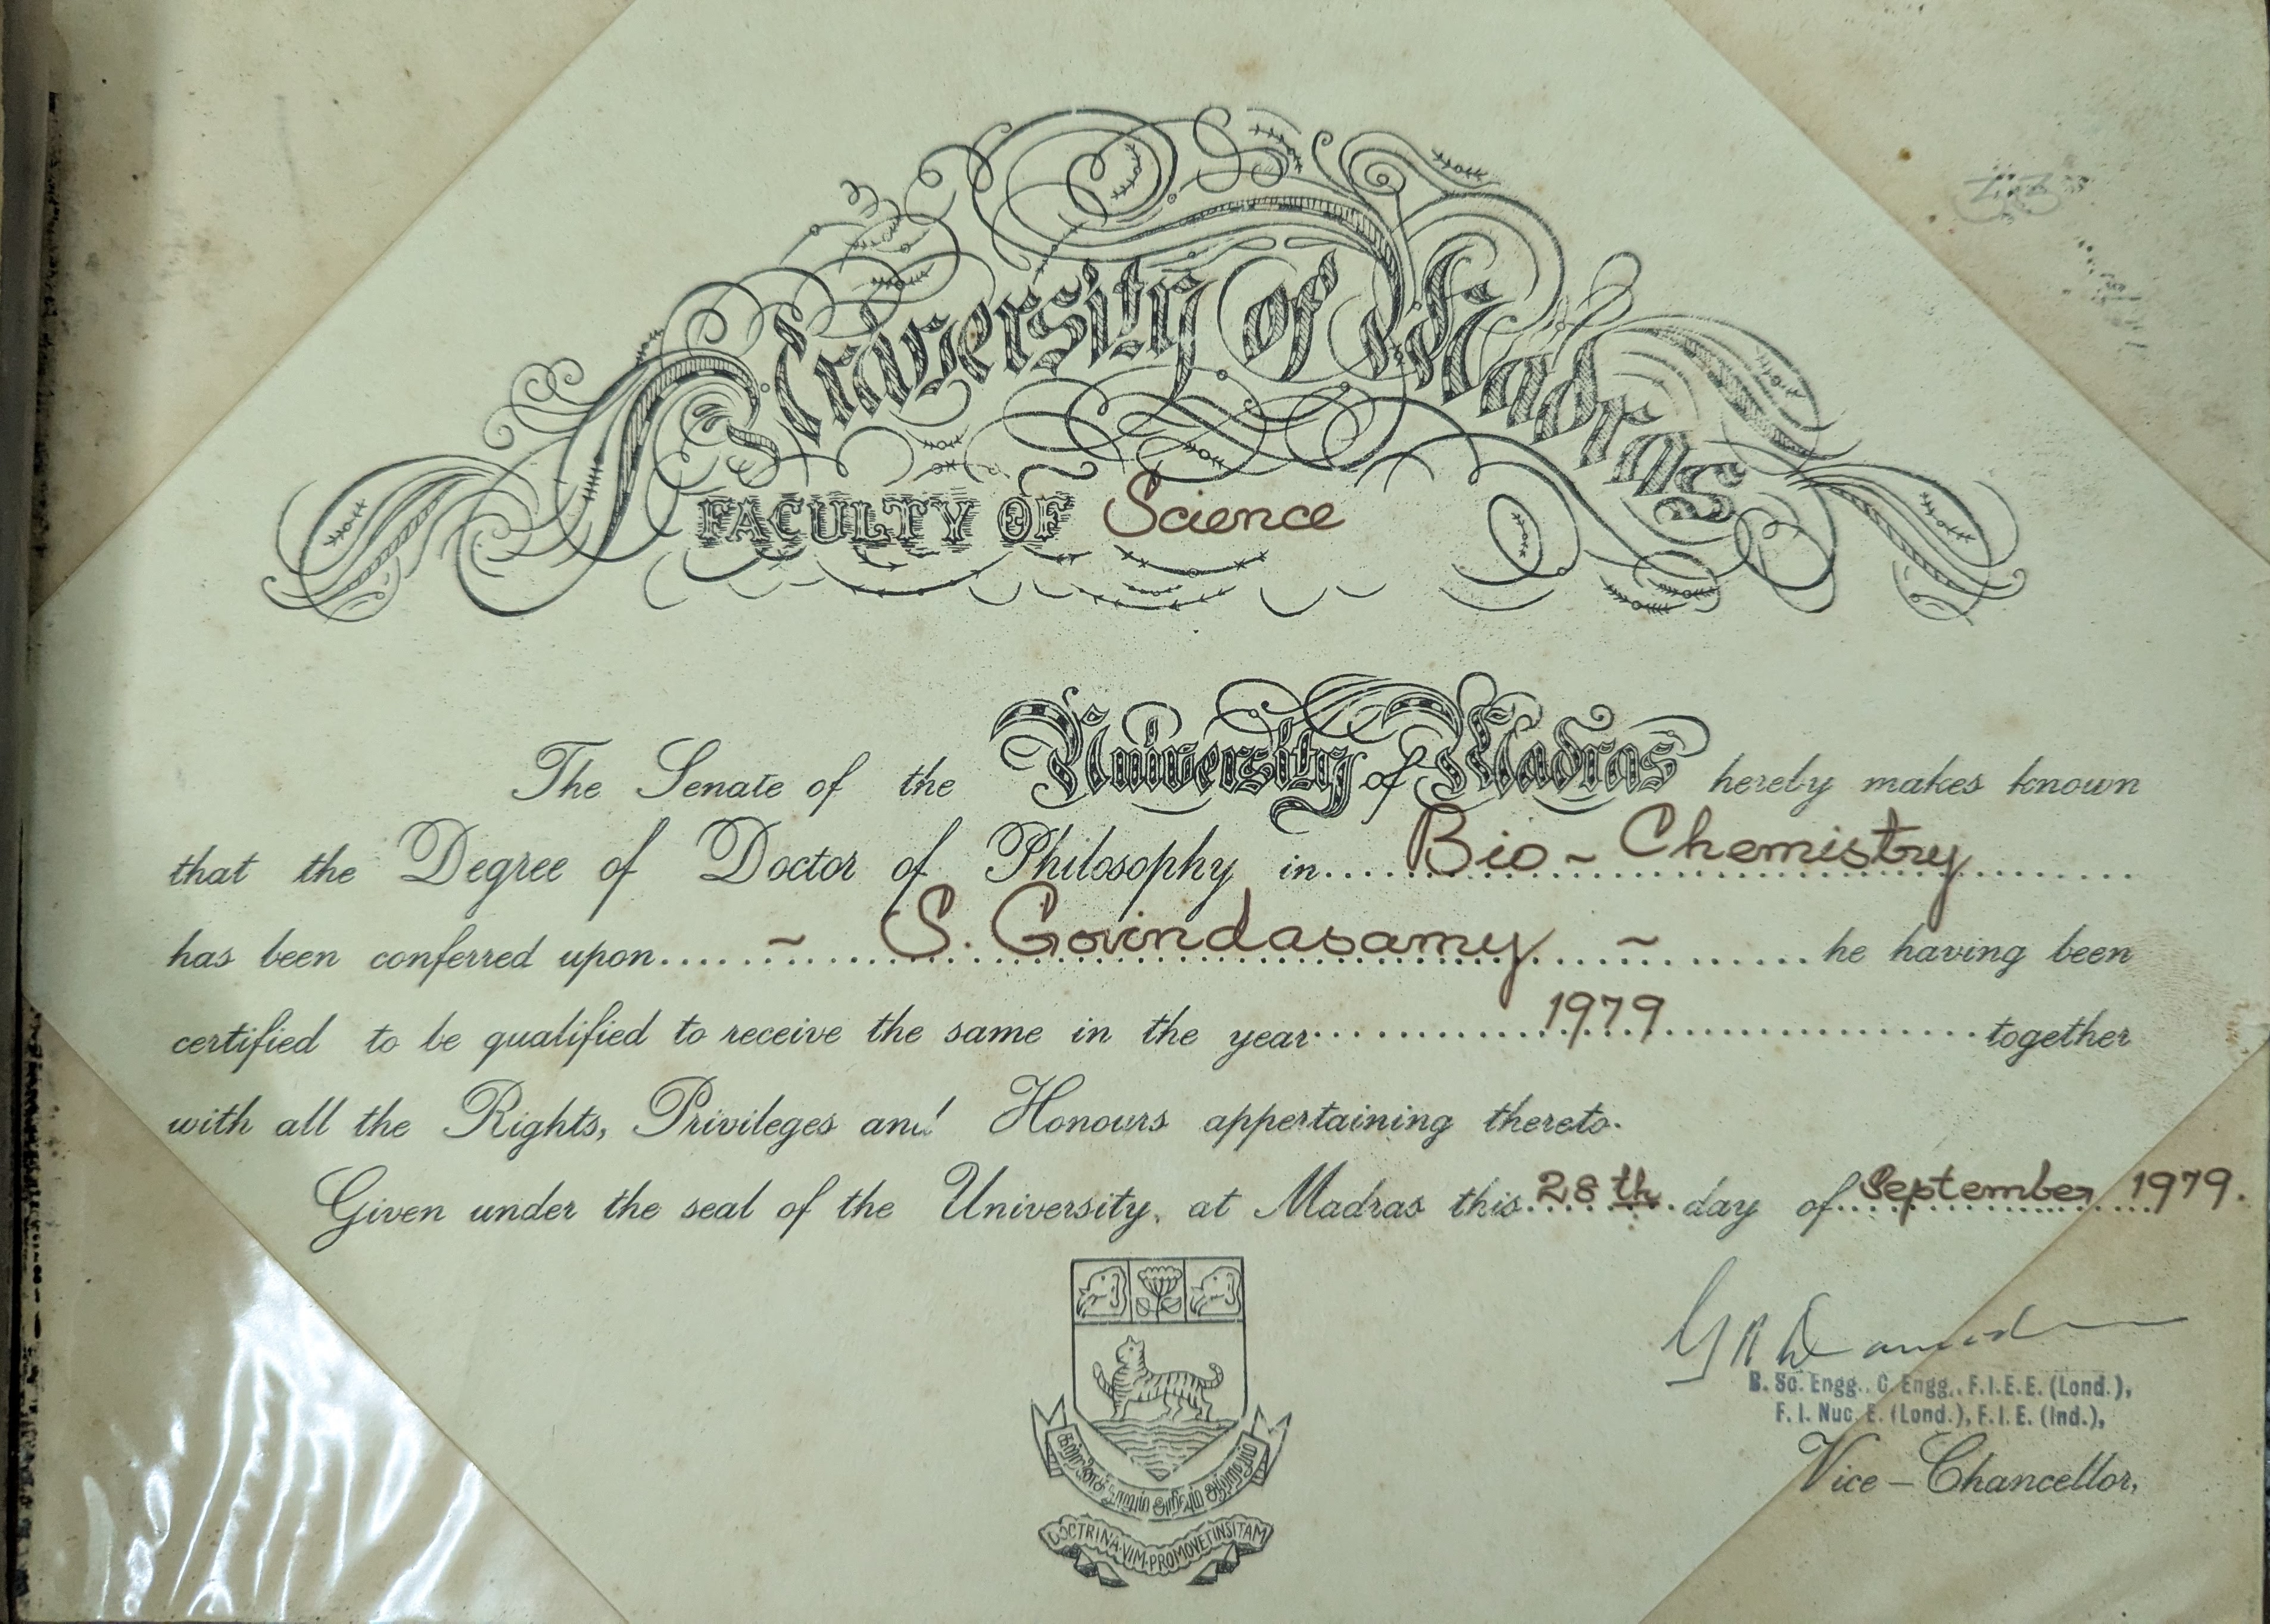 University of Madras
FACULTY OF Science
The Senate of the University of Madras hereby makes known
that the Degree of Doctor of Philosophy in....Bio - Chemistry..........
has been conferred upon.....~ S. Govindasamy ~.........he having been
certified to be qualified to receive the same in the year..........1979..........together
with all the Rights, Privileges and Honours appertaining thereto.
Given under the seal of the University, at Madras this 28th day of September 1979.
B. Sc. Engg., C. Engg., F.I.E.E. (Lond.),
F. I. Nuc. E. (Lond.), F.I.E. (Ind.),
Vice-Chancellor,
கற்றனைத் தூறும் அறிவும் ஆற்றலும்
DOCTRINA VIM PROMOVET INSITAM